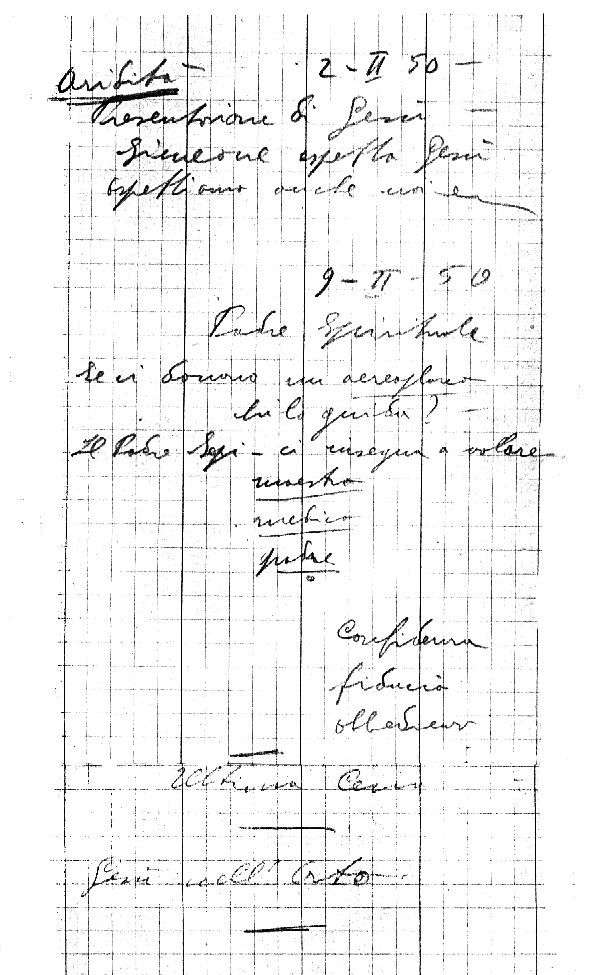 Aridità 2-II 50 -
Presentazione di Gesù -
Simeone aspetta Gesù
aspettiamo anche noi
9-II-50
Padre Spirituale
Se ci donano un aereoplano
chi lo guida? -
Il Padre Spi- ci insegna a volare
maestro
medico
padre
Confidenza
fiducia
obbedienza
Ultima Cena
Gesù nell'Orto.